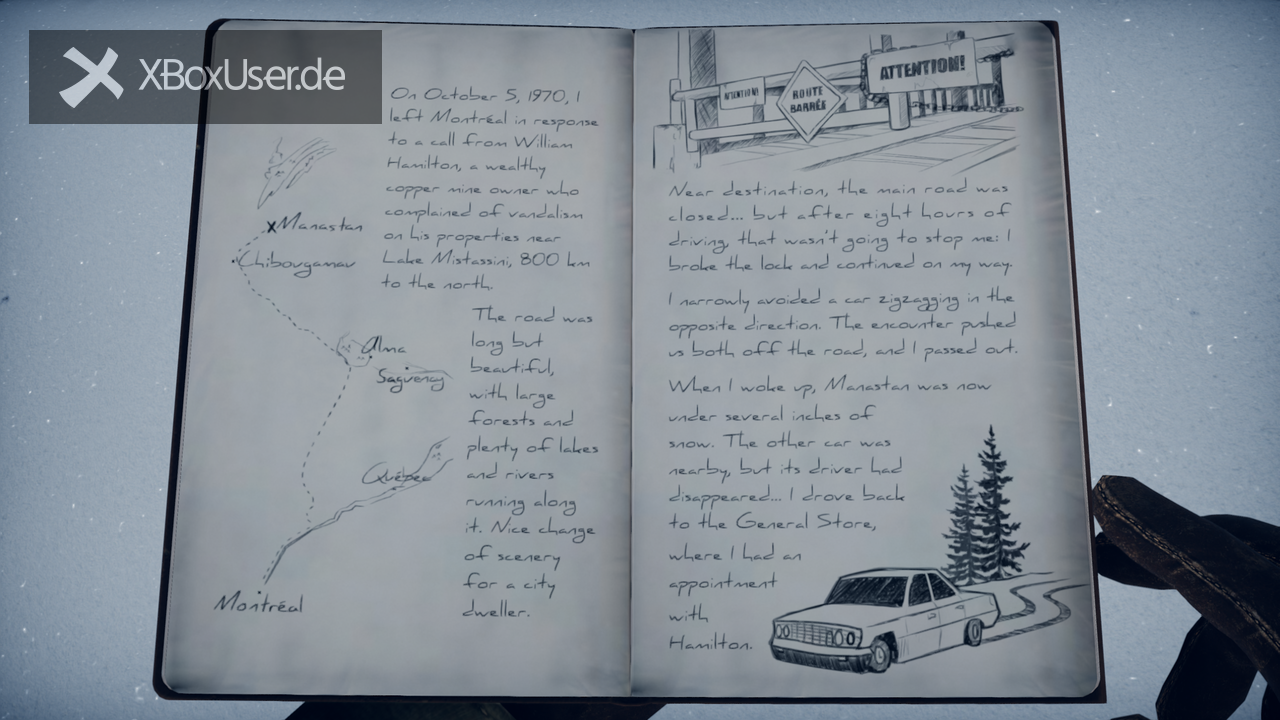 XBoxUser.de
On October 5, 1970, I
left Montréal in response
to a call from William
Hamilton, a wealthy
copper mine owner who
complained of vandalism
on his properties near
Lake Mistassini, 800 km
to the north.
The road was
long but
beautiful,
with large
forests and
plenty of lakes
and rivers
running along
it. Nice change
of scenery
for a city
dweller.
Manastan
Chibougamau
Alma
Saguenay
Québec
Montréal
ATTENTION!
ROUTE
BARRÉE
ATTENTION!
Near destination, the main road was
closed... but after eight hours of
driving, that wasn't going to stop me: I
broke the lock and continued on my way.
I narrowly avoided a car zigzagging in the
opposite direction. The encounter pushed
us both off the road, and I passed out.
When I woke up, Manastan was now
under several inches of
snow. The other car was
nearby, but its driver had
disappeared... I drove back
to the General Store,
where I had an
appointment
with
Hamilton.